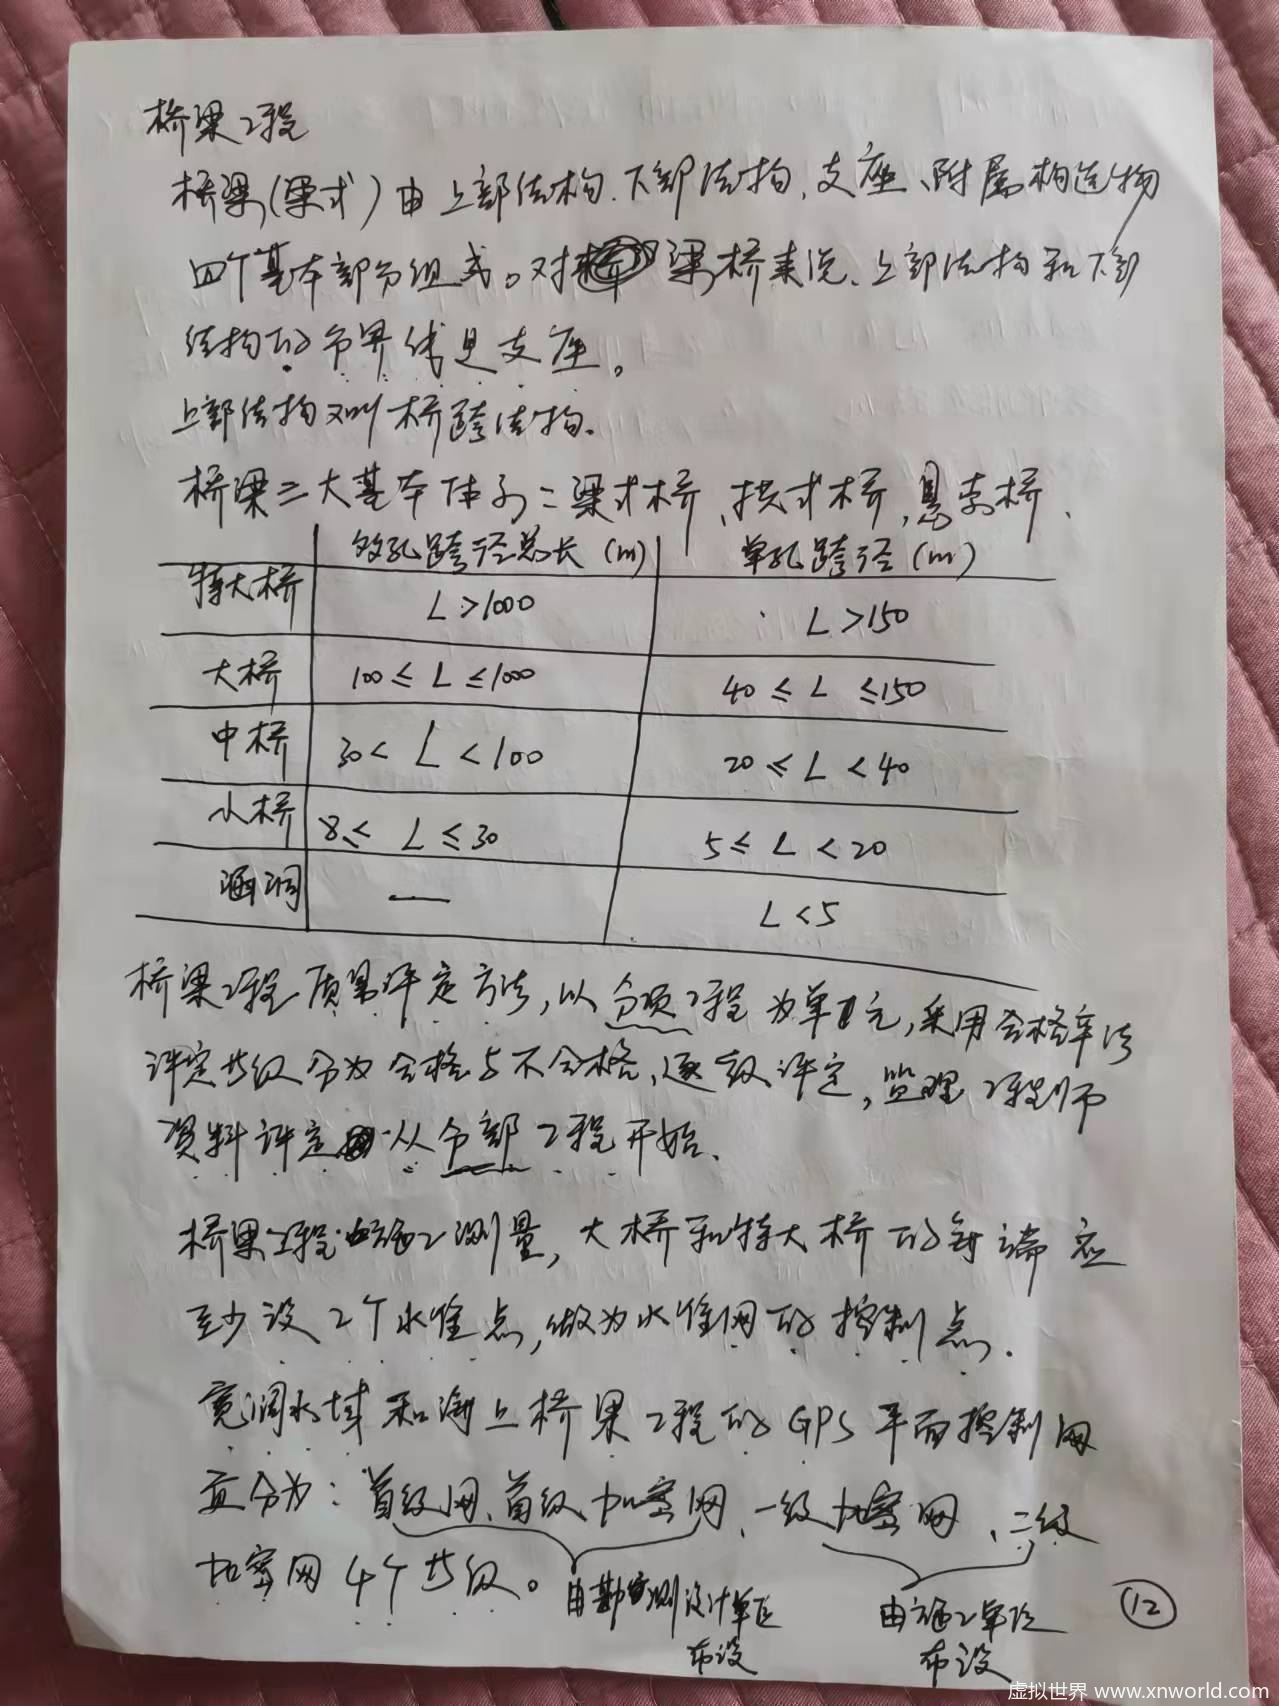 桥梁工程
桥梁(梁式)由上部结构、下部结构、支座、附属构造物
四个基本部分组成。对 梁桥来说、上部结构和下部
结构的分界线是支座。
上部结构又叫桥跨结构.
桥梁三大基本体系:梁式桥、拱式桥,悬索桥、
多孔跨径总长(m) 单孔跨径(m)
特大桥 L>1000 L>150
大桥 100≤L≤1000 40≤L≤150
中桥 30<L<100 20≤L<40
小桥 8≤L≤30 5≤L<20
涵洞 — L<5
桥梁工程质量评定方法,以分项工程为单元,采用合格率法
评定等级分为合格与不合格,逐级评定,监理工程师
资料评定从分部工程开始.
桥梁工程施工测量,大桥和特大桥的每端应
至少设2个水准点,做为水准网的控制点.
宽阔水域和海上桥梁工程的GPS平面控制网
宜分为:首级网、首级加密网、一级加密网、二级
加密网4个等级。
由勘测设计单位
布设
由施工单位
布设
12
虚拟世界 www.xnworld.com